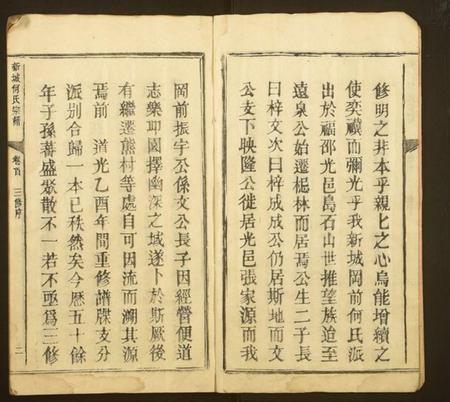 修明之非本乎親匕之心烏能增續之
使奕禩而彌光乎我新城岡前何氏派
出於福邵光邑島石山世推望族迨至
遠泉公始遷椐林而居焉公生二子長
曰梓文次曰梓成成公仍居斯地而文
公支下映隆公徙居光邑張家源而我
岡前振宇公係文公長子因經營便道
志樂耶國擇幽深之域遂卜於斯厥後
有繼遷熊村等處自可因流而溯其源
焉前 道光乙酉年間重修譜牒支分
派别合歸一本已秩然矣今歴五十餘
年子孫蕃盛聚散不一若不亟爲三修
新城何氏宗譜 卷首 三修序 二